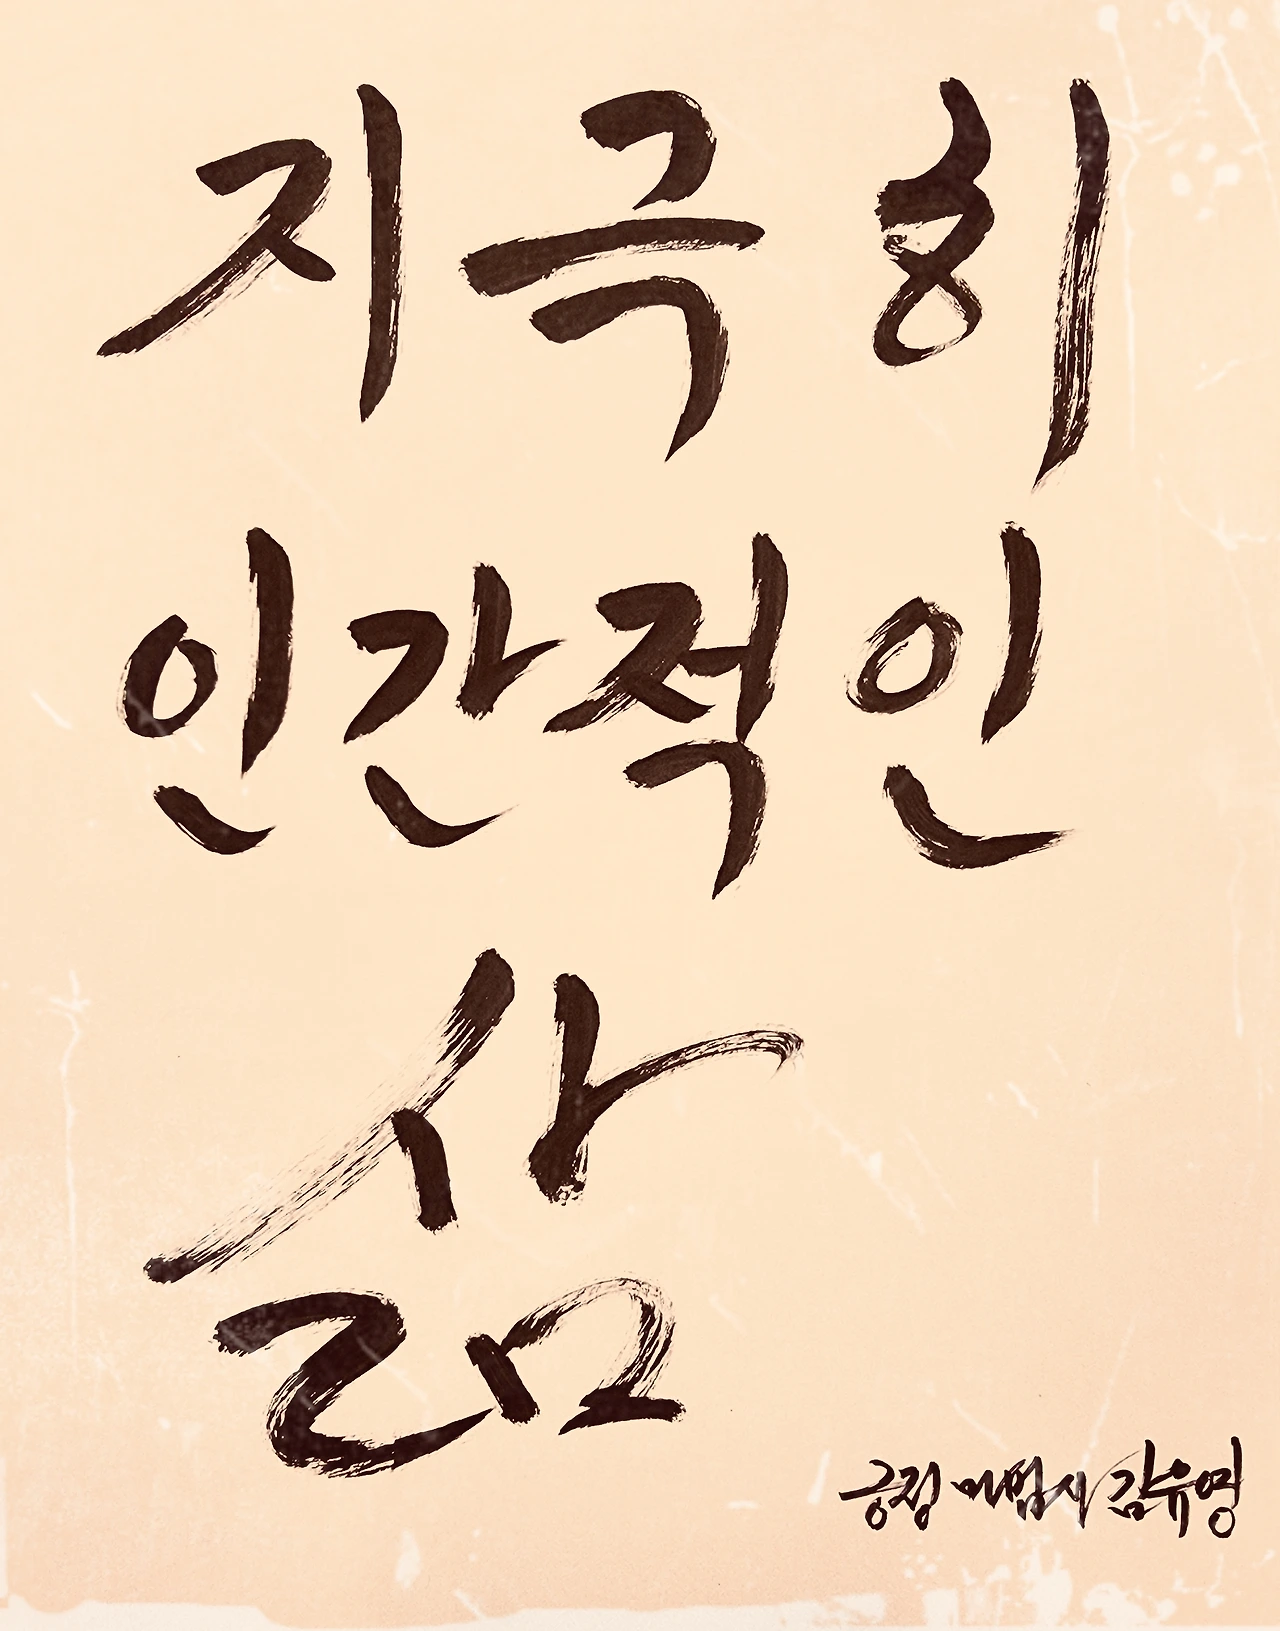 지극히
인간적인
삶
긍정 마법사 김유영